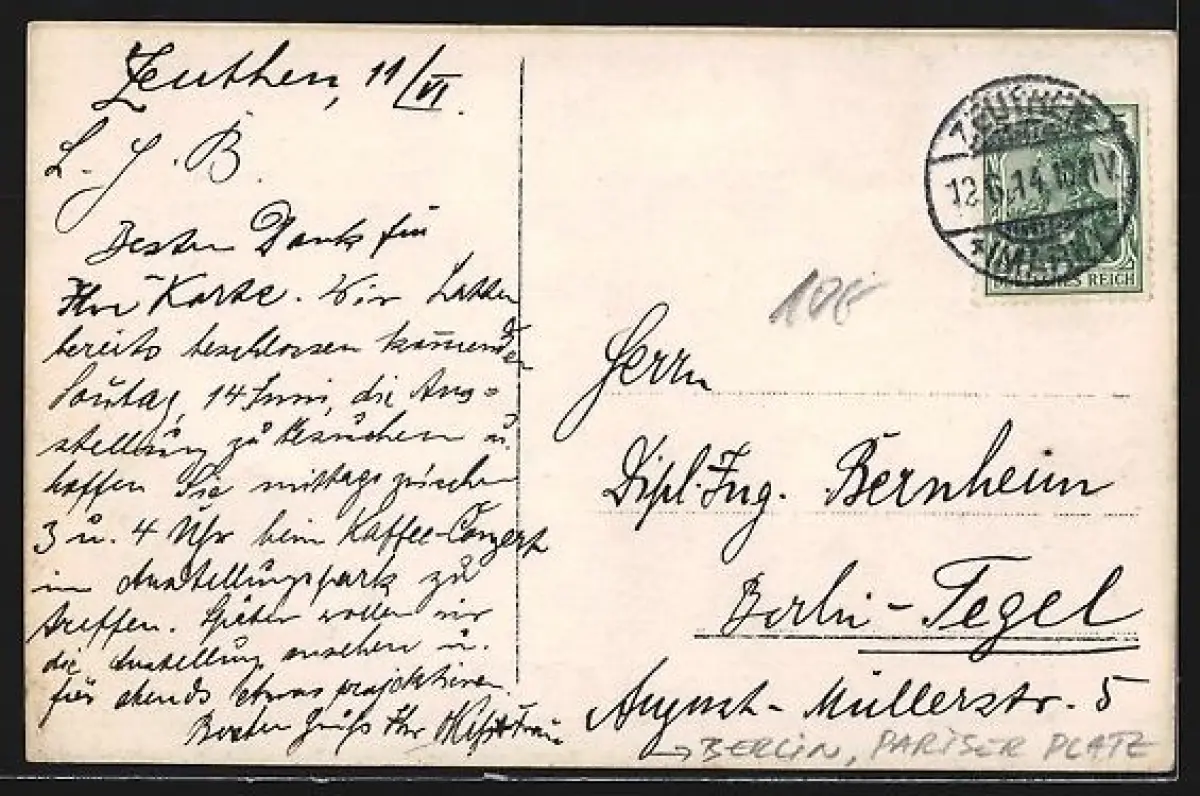 Zeuthen, 11/VI.
L. H. B.
Besten Dank für
Ihre Karte. Wir hatten
bereits beschlossen kommenden
Sonntag, 14 Juni, die Aus-
stellung zu besuchen u.
hoffen Sie mittags zwischen
3 u. 4 Uhr beim Kaffee-Conzert
im Ausstellungspark zu
treffen. Später wollen wir
die Ausstellung ansehen u.
für abends etwas projektieren.
Besten Gruß Ihr
ZEUTHEN
12.6.14.
(MARK)
DEUTSCHES REICH
108
Herrn
Dipl. Ing. Bernheim
Berlin-Tegel
August-Müllerstr. 5
BERLIN, PARISER PLATZ